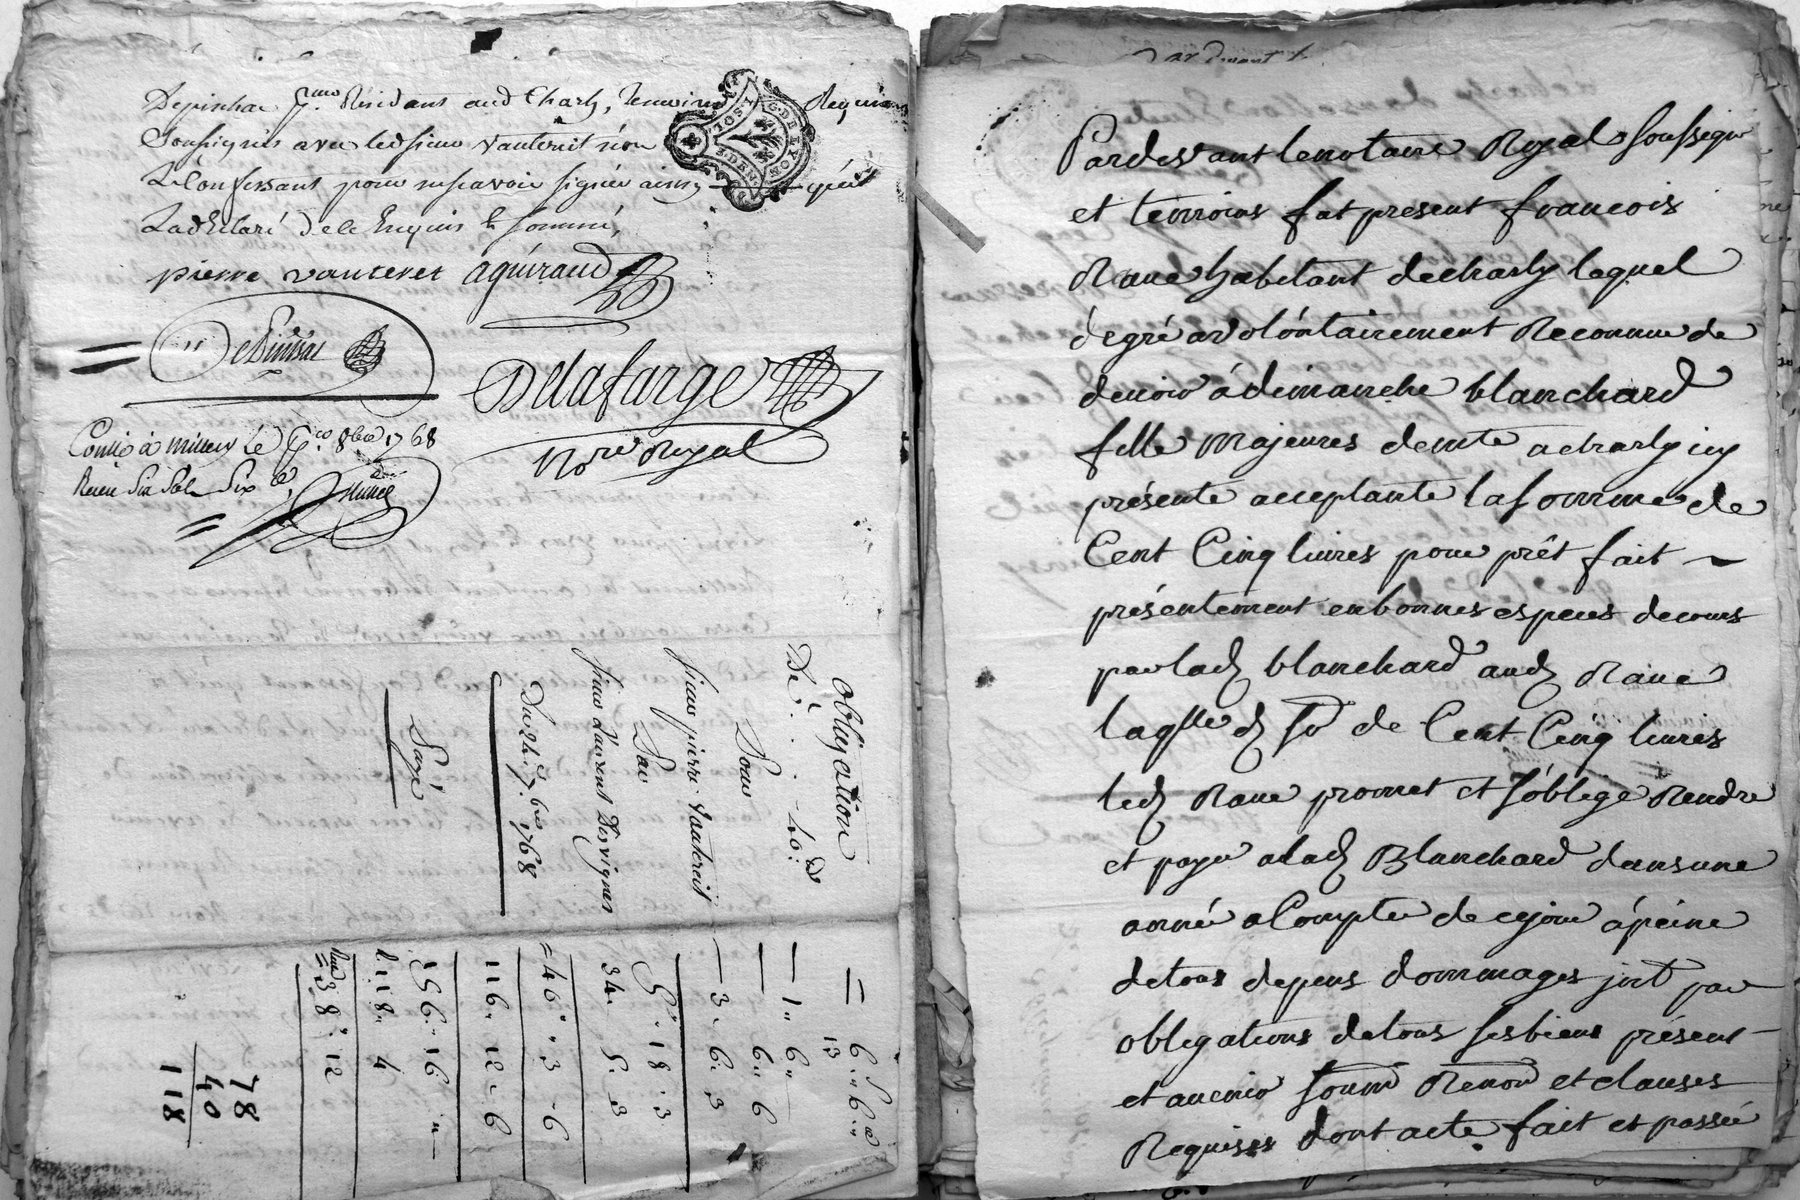 Depinchac Résidans aud Charly, Temoins Requis
Soussignés avec led sieur vautrit non
Le Confessant pour ne savoir signer ainsy qu'il
La déclaré de ce Enquis & sommé,
pierre vauteret aguiraud
Depinsac
Delafarge
Nore Royal
Conllé à millery le 8bre 1768
Receu Six Sols Six d.
Obligation
De . . . . 40:
Pour
sieur pierre vautereit
Par
sieur Laurent Desvignes
Du 24e 7bre 1768
Payé
= 6 " 6 "
13
— 1 " 6 "
— 6 " 6
— 3 " 6 " 3
5 " 18 " 3
34 " 5 " 3
= 40 " 3 " 6
116 " 12 " 6
156 " 16 "
118 " 4
= 38 " 12
78
40
118
Pardevant le notaire Royal soussigné
et temoins fut present francois
Rave habitant de charly lequel
de gré a volontairement Reconnu de
devoir à dimanche blanchard
fille majeures demte a charly icy
présente acceptante la somme de
Cent Cinq livres pour prêt fait ~
présentement en bonnes especes de cours
par lad blanchard aud Rave
laqlle d so de Cent Cinq livres
led Rave promet et s'oblige Rendre
et payer a lad Blanchard dans une
année a Compter de ce jour à peine
de tous depens dommages jnt par
obligations de tous ses biens présent
et avenir soum Renon et clauses
Requises dont acte fait et passé